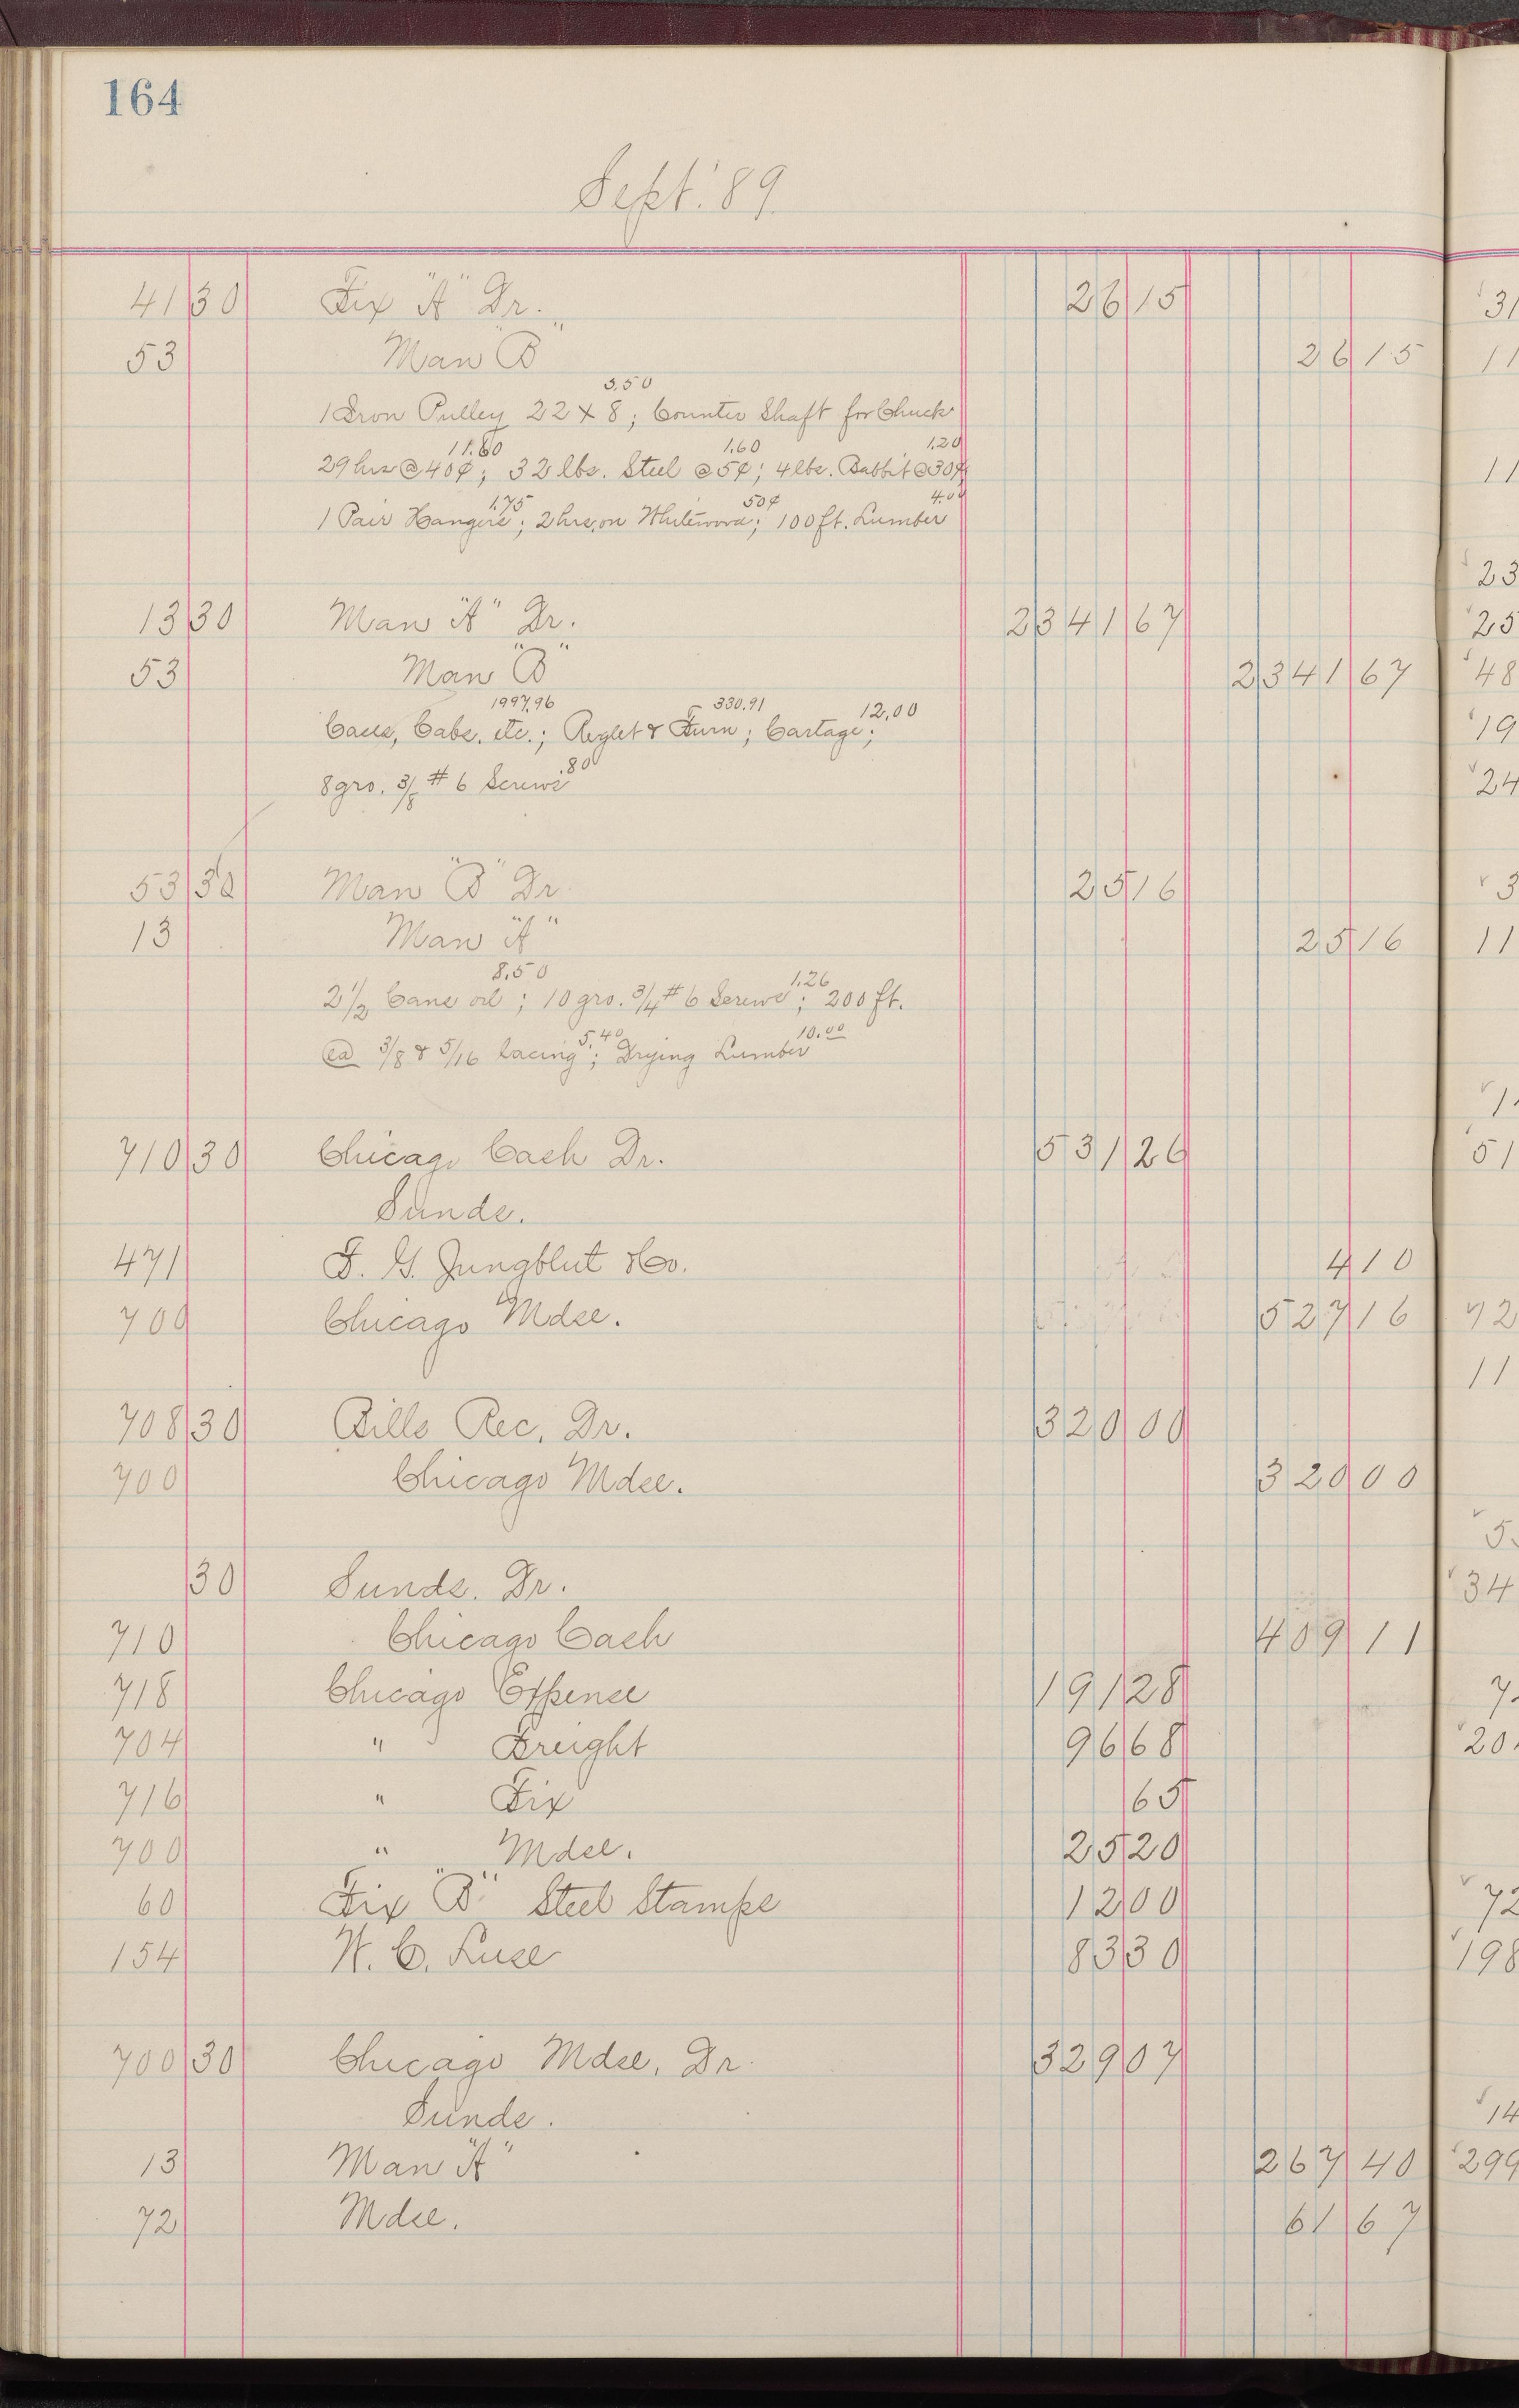 164
Sept. '89.
41 30 Fix "A" Dr. 26 15
53 Man "B" 26 15
5.50
1 Iron Pulley 22 x 8; Counter Shaft for Chuck
11.60 1.60 1.20
29 hrs @ 40¢; 32 lbs. Steel @ 5¢; 4 lbs. Babbit @ 30¢
1.75 50¢ 4.00
1 Pair Hangers; 2 hrs. on Whitewood; 100 ft. Lumber
13 30 Man "A" Dr. 2341 67
53 Man "B" 2341 67
1997.96 330.91 12.00
Cases, Cabs. etc.; Reglet & Furn; Cartage;
.80
8 gro. 3/8 # 6 Screws
53 30 Man "B" Dr 25 16
13 Man "A" 25 16
8.50 1.26
2 1/2 Cans oil; 10 gro. 3/4 # 6 Screws; 200 ft.
5.40 10.00
ea 3/8 & 5/16 lacing; Drying Lumber
710 30 Chicago Cash Dr. 531 26
Sunds.
471 F. G. Jungblut & Co. 4 10
700 Chicago Mdse. 527 16
708 30 Bills Rec. Dr. 320 00
700 Chicago Mdse. 320 00
30 Sunds. Dr.
710 Chicago Cash 409 11
718 Chicago Expense 191 28
704 " Freight 96 68
716 " Fix 65
700 " Mdse. 25 20
60 Fix "B" Steel Stamps 12 00
154 W. C. Luse 83 30
700 30 Chicago Mdse. Dr. 329 07
Sunds.
13 Man "A" 267 40
72 Mdse. 61 67